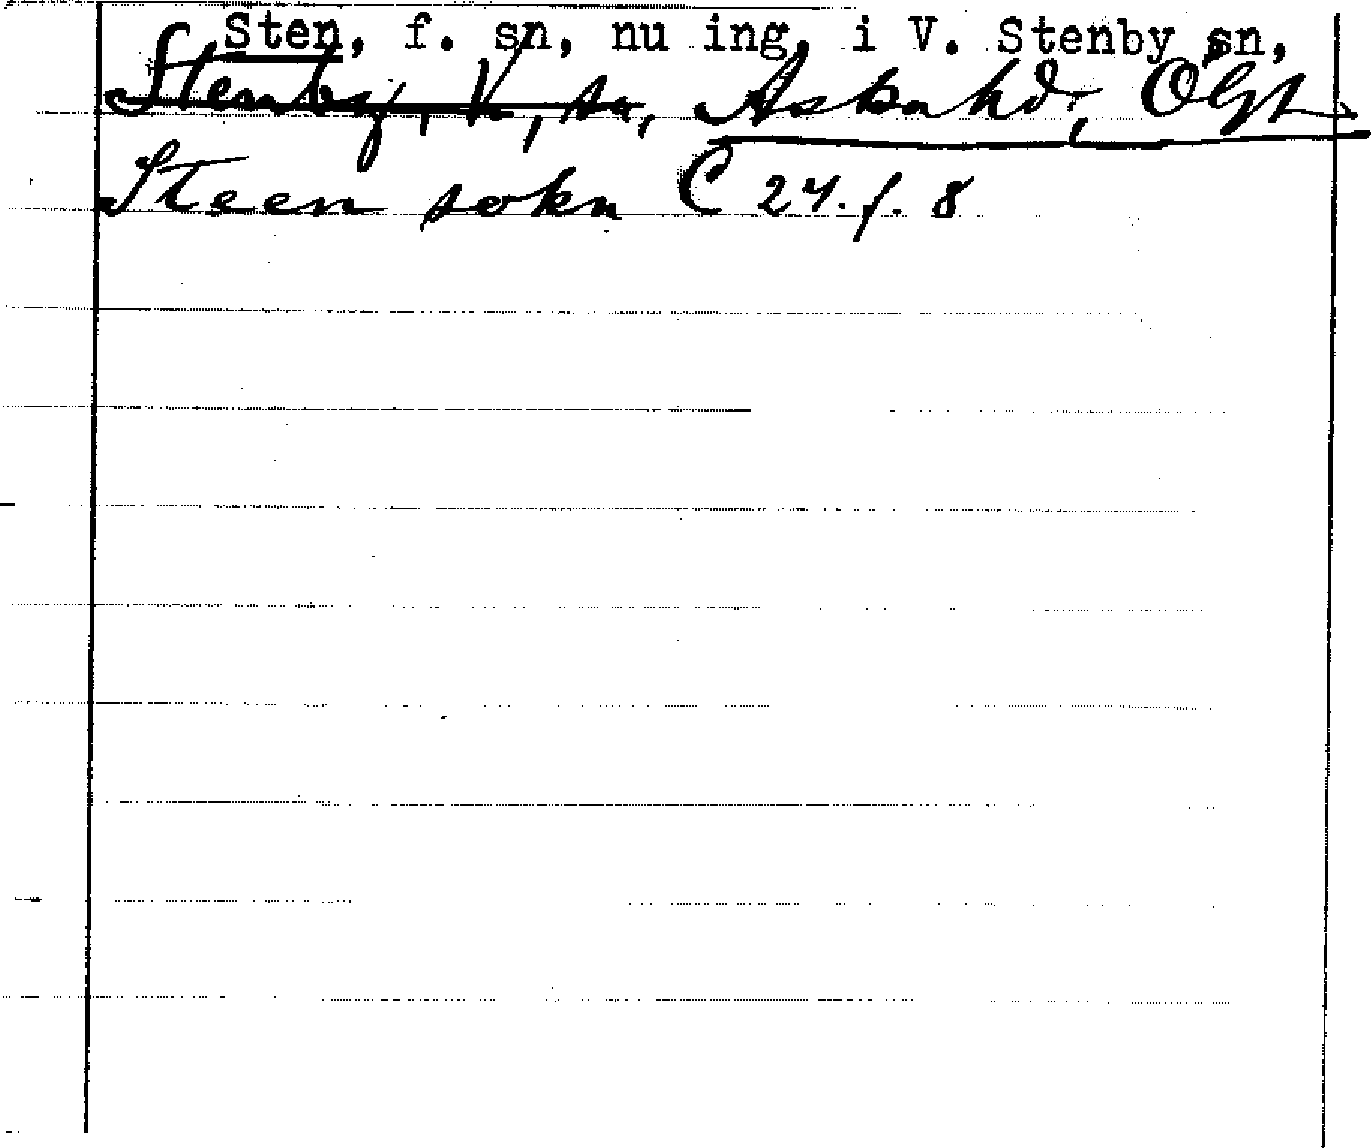 Sten, f. sn, nu ing. i V. Stenby sn,
Stenby, V, sn, Aska hd, Ögl
Steen sokn C 24. f. 8